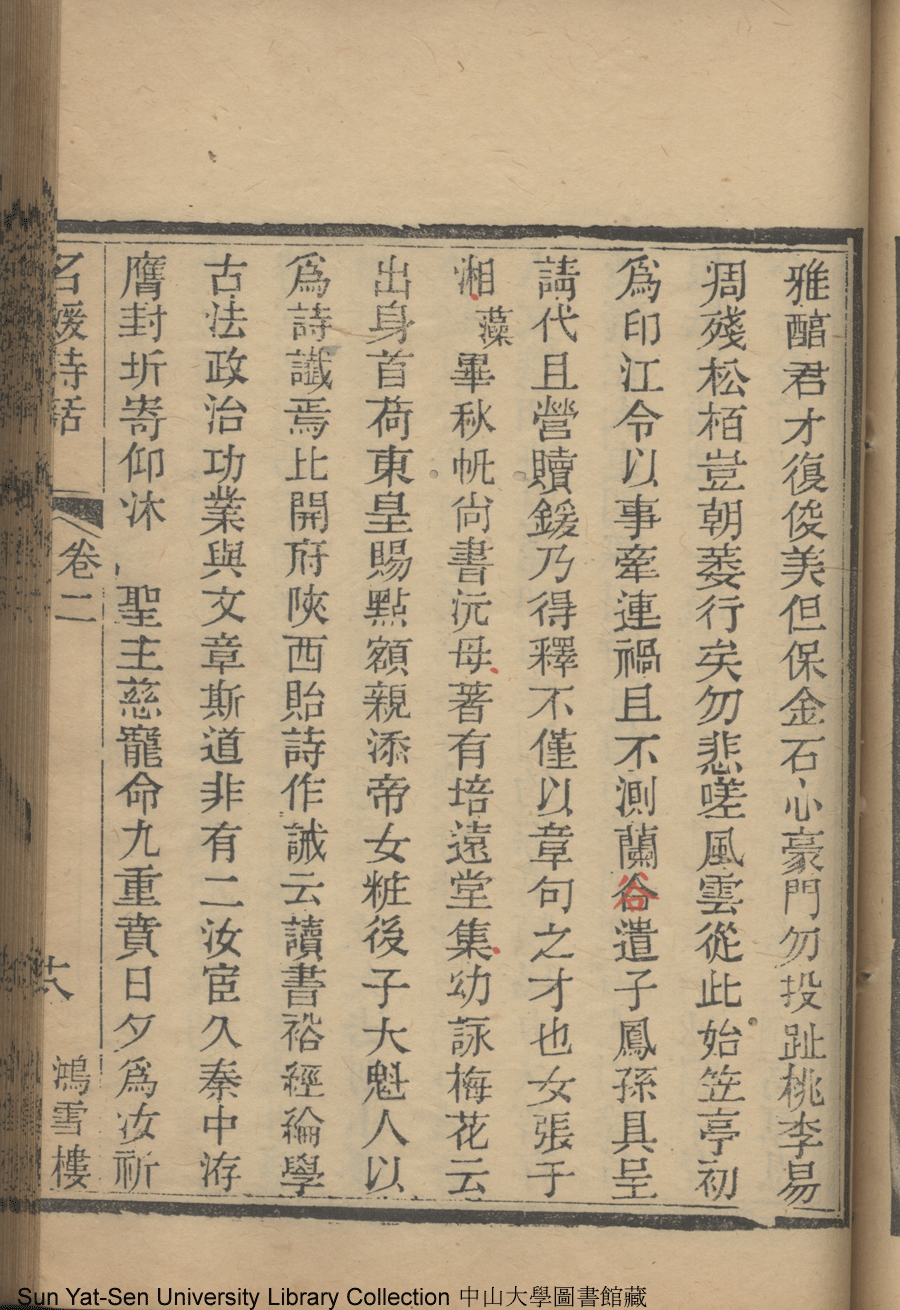 雅醕君才復俊美但保金石心豪門勿投趾桃李易
凋殘松栢豈朝萎行矣勿悲嗟風雲從此始笠亭初
爲印江令以事牽連禍且不測蘭谷遣子鳳孫具呈
請代且營贖鍰乃得釋不僅以章句之才也女張于
湘藻畢秋帆尚書沅母著有培遠堂集幼詠梅花云
出身首荷東皇賜點額親添帝女粧後子大魁人以
爲詩讖焉比開府陝西貽詩作誡云讀書裕經綸學
古法政治功業與文章斯道非有二汝宦久秦中洊
膺封圻寄仰沐 聖主慈寵命九重賁日夕爲汝祈
名媛詩話 卷二 十八 鴻雪樓
Sun Yat-Sen University Library Collection 中山大學圖書館藏